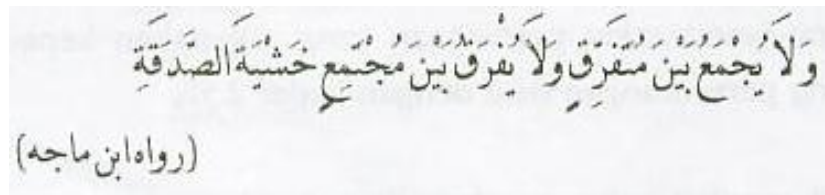 وَلَا يُجْمَعُ بَيْنَ مُتَفَرِّقٍ وَلَا يُفَرَّقُ بَيْنَ مُجْتَمِعٍ خَشْيَةَ الصَّدَقَةِ
(رواه ابن ماجه)